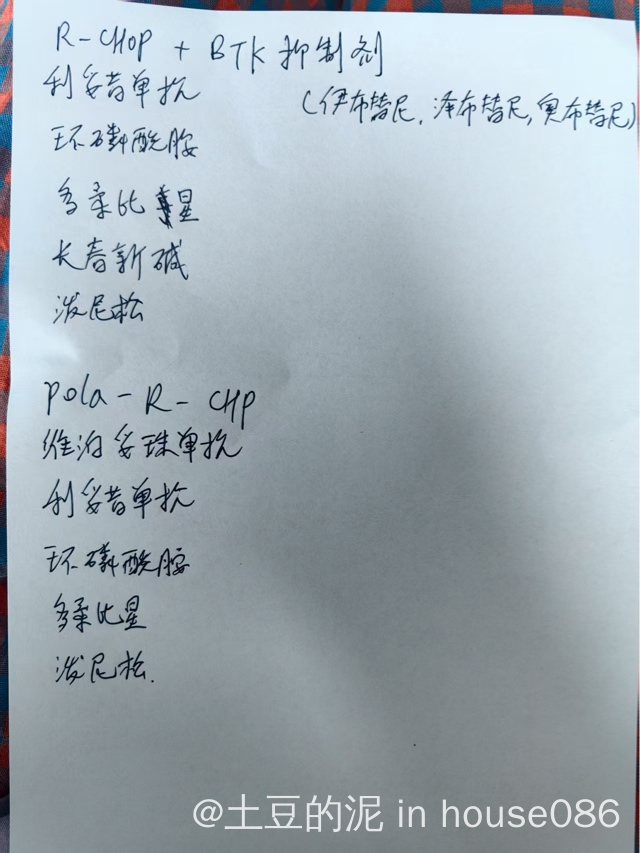 R-CHOP + BTK 抑制剂
利妥昔单抗
(伊布替尼,泽布替尼,奥布替尼)
环磷酰胺
多柔比星
长春新碱
泼尼松
pola-R-CHP
维泊妥珠单抗
利妥昔单抗
环磷酰胺
多柔比星
泼尼松.
@土豆的泥 in house086